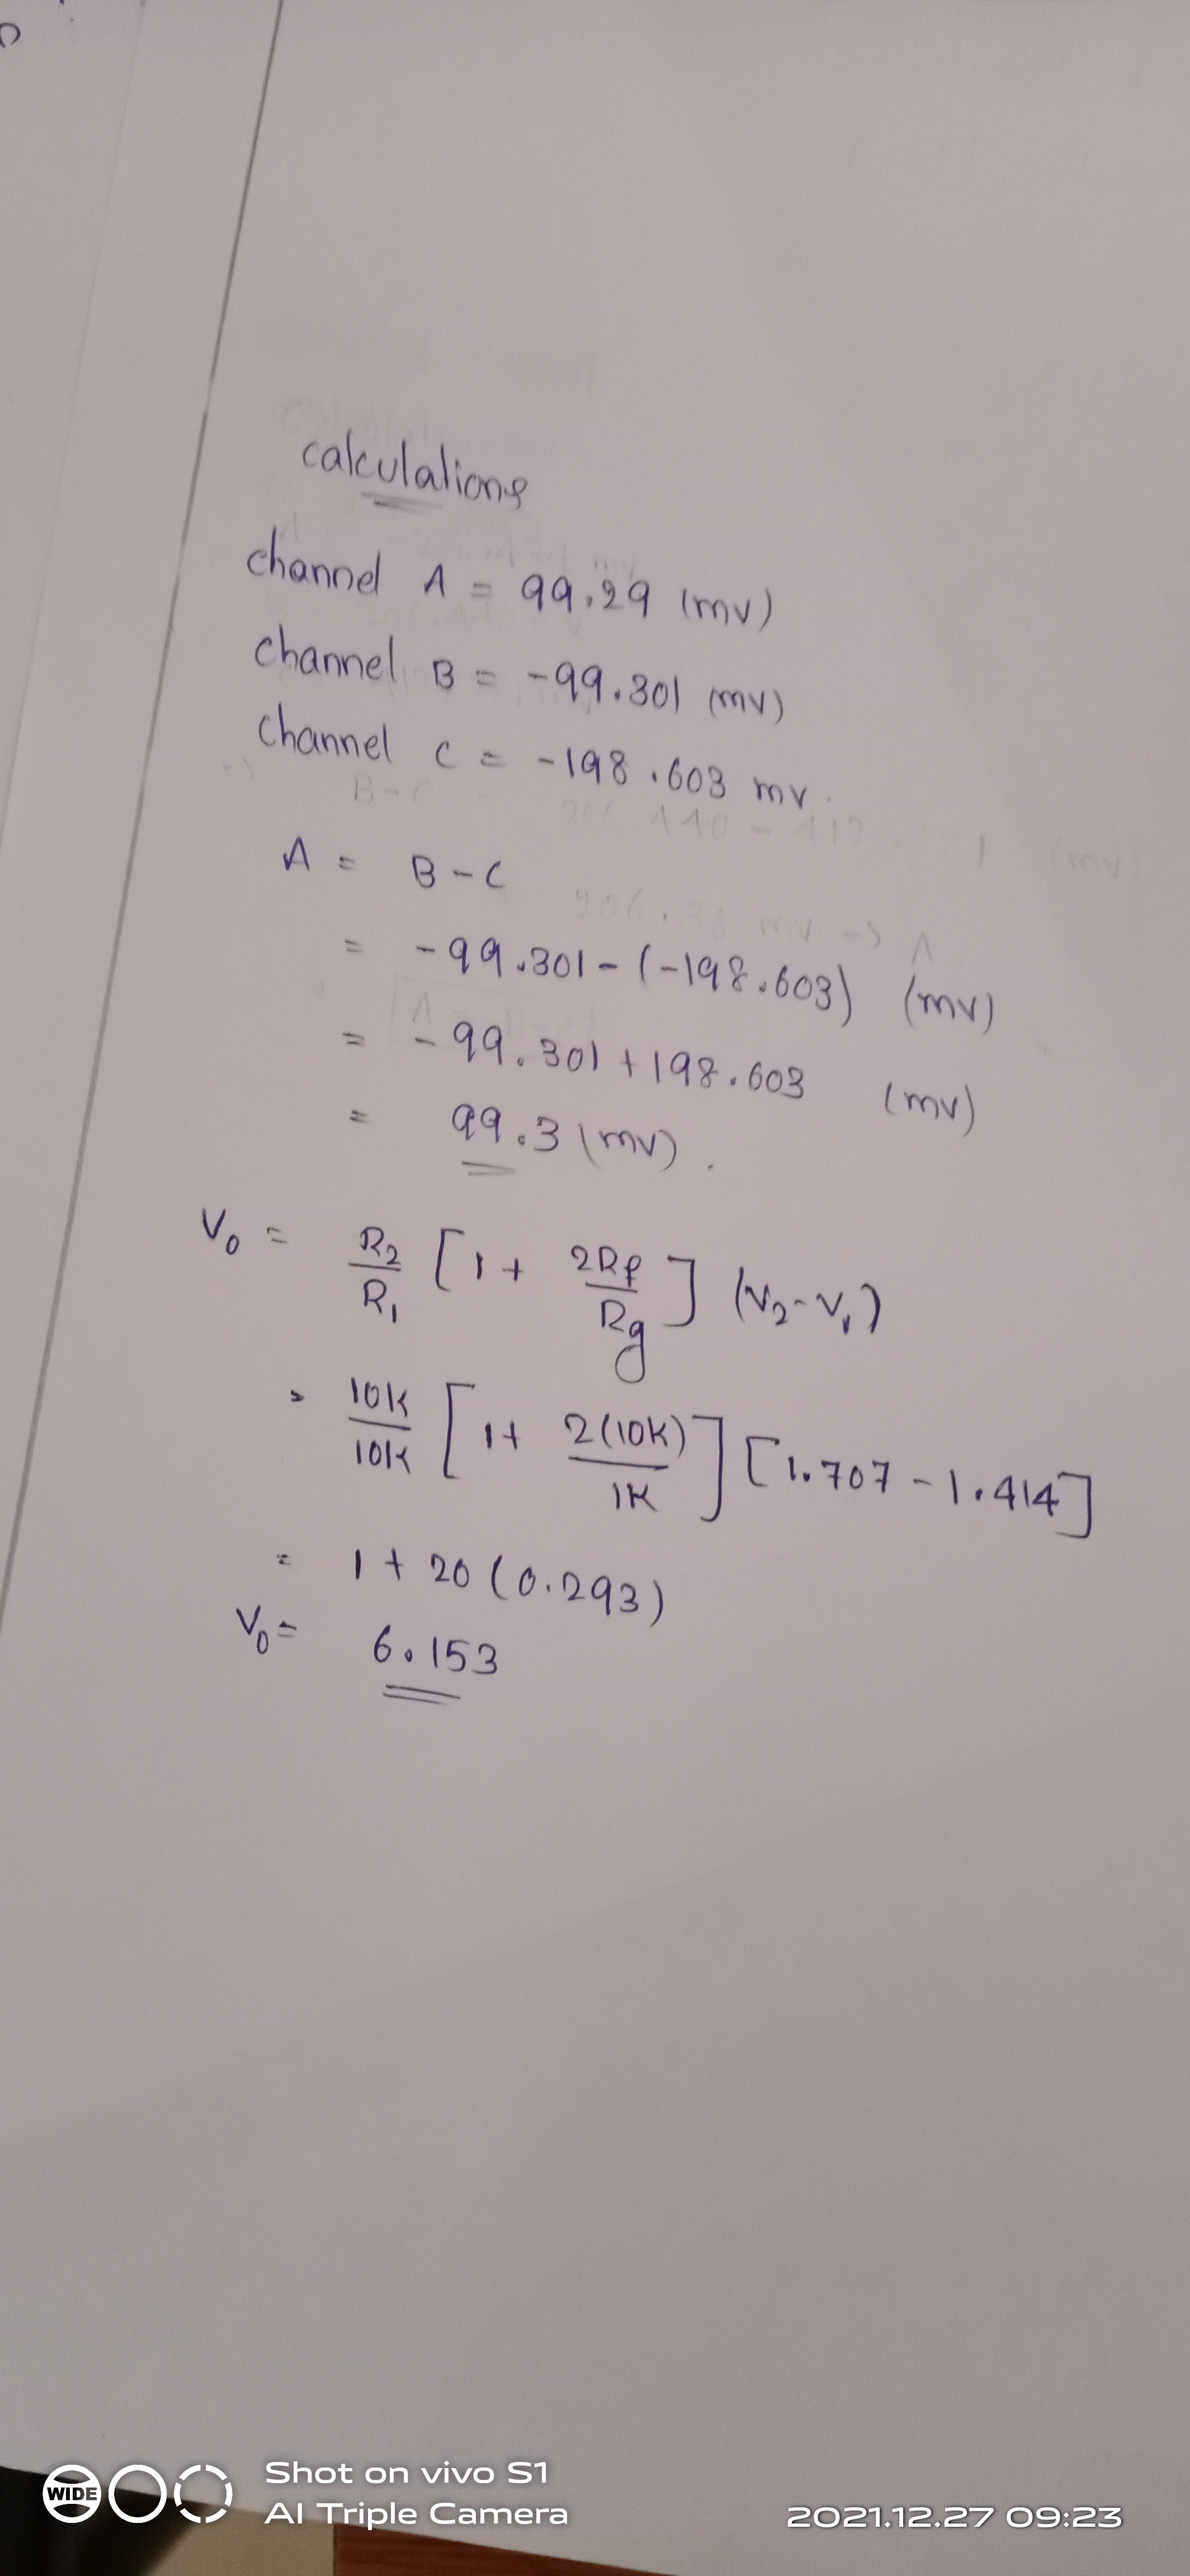 calculations
channel A = 99.29 (mv)
channel B = -99.301 (mv)
channel C = -198.603 mv.
A = B-C
= -99.301-(-198.603) (mv)
= -99.301+198.603 (mv)
= 99.3 (mv).
V₀ = R₂/R₁ [1+ 2Rf/Rg] (V₂-V₁)
= 10K/10K [1+ 2(10K)/1K] [1.707-1.414]
= 1+20(0.293)
V₀= 6.153
WIDE
Shot on vivo S1
AI Triple Camera
2021.12.27 09:23